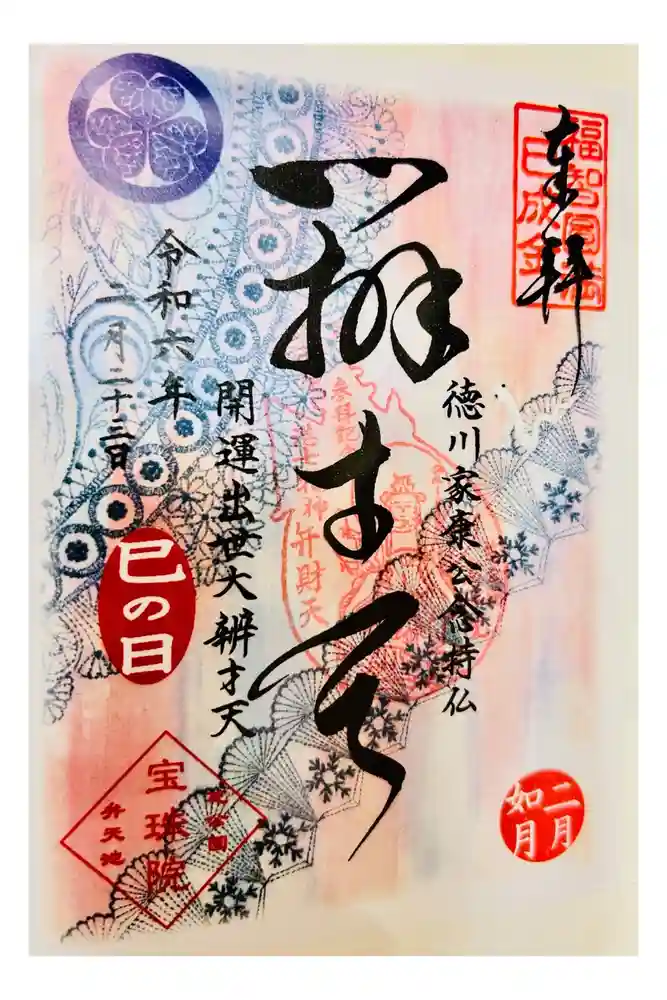 奉拝
福智圓満
巳成金
徳川家康公念持仏
辨才天
開運出世大辨才天
令和六年
二月二十三日
巳の日
宝珠院
弁天池
芝公園
二月
如月